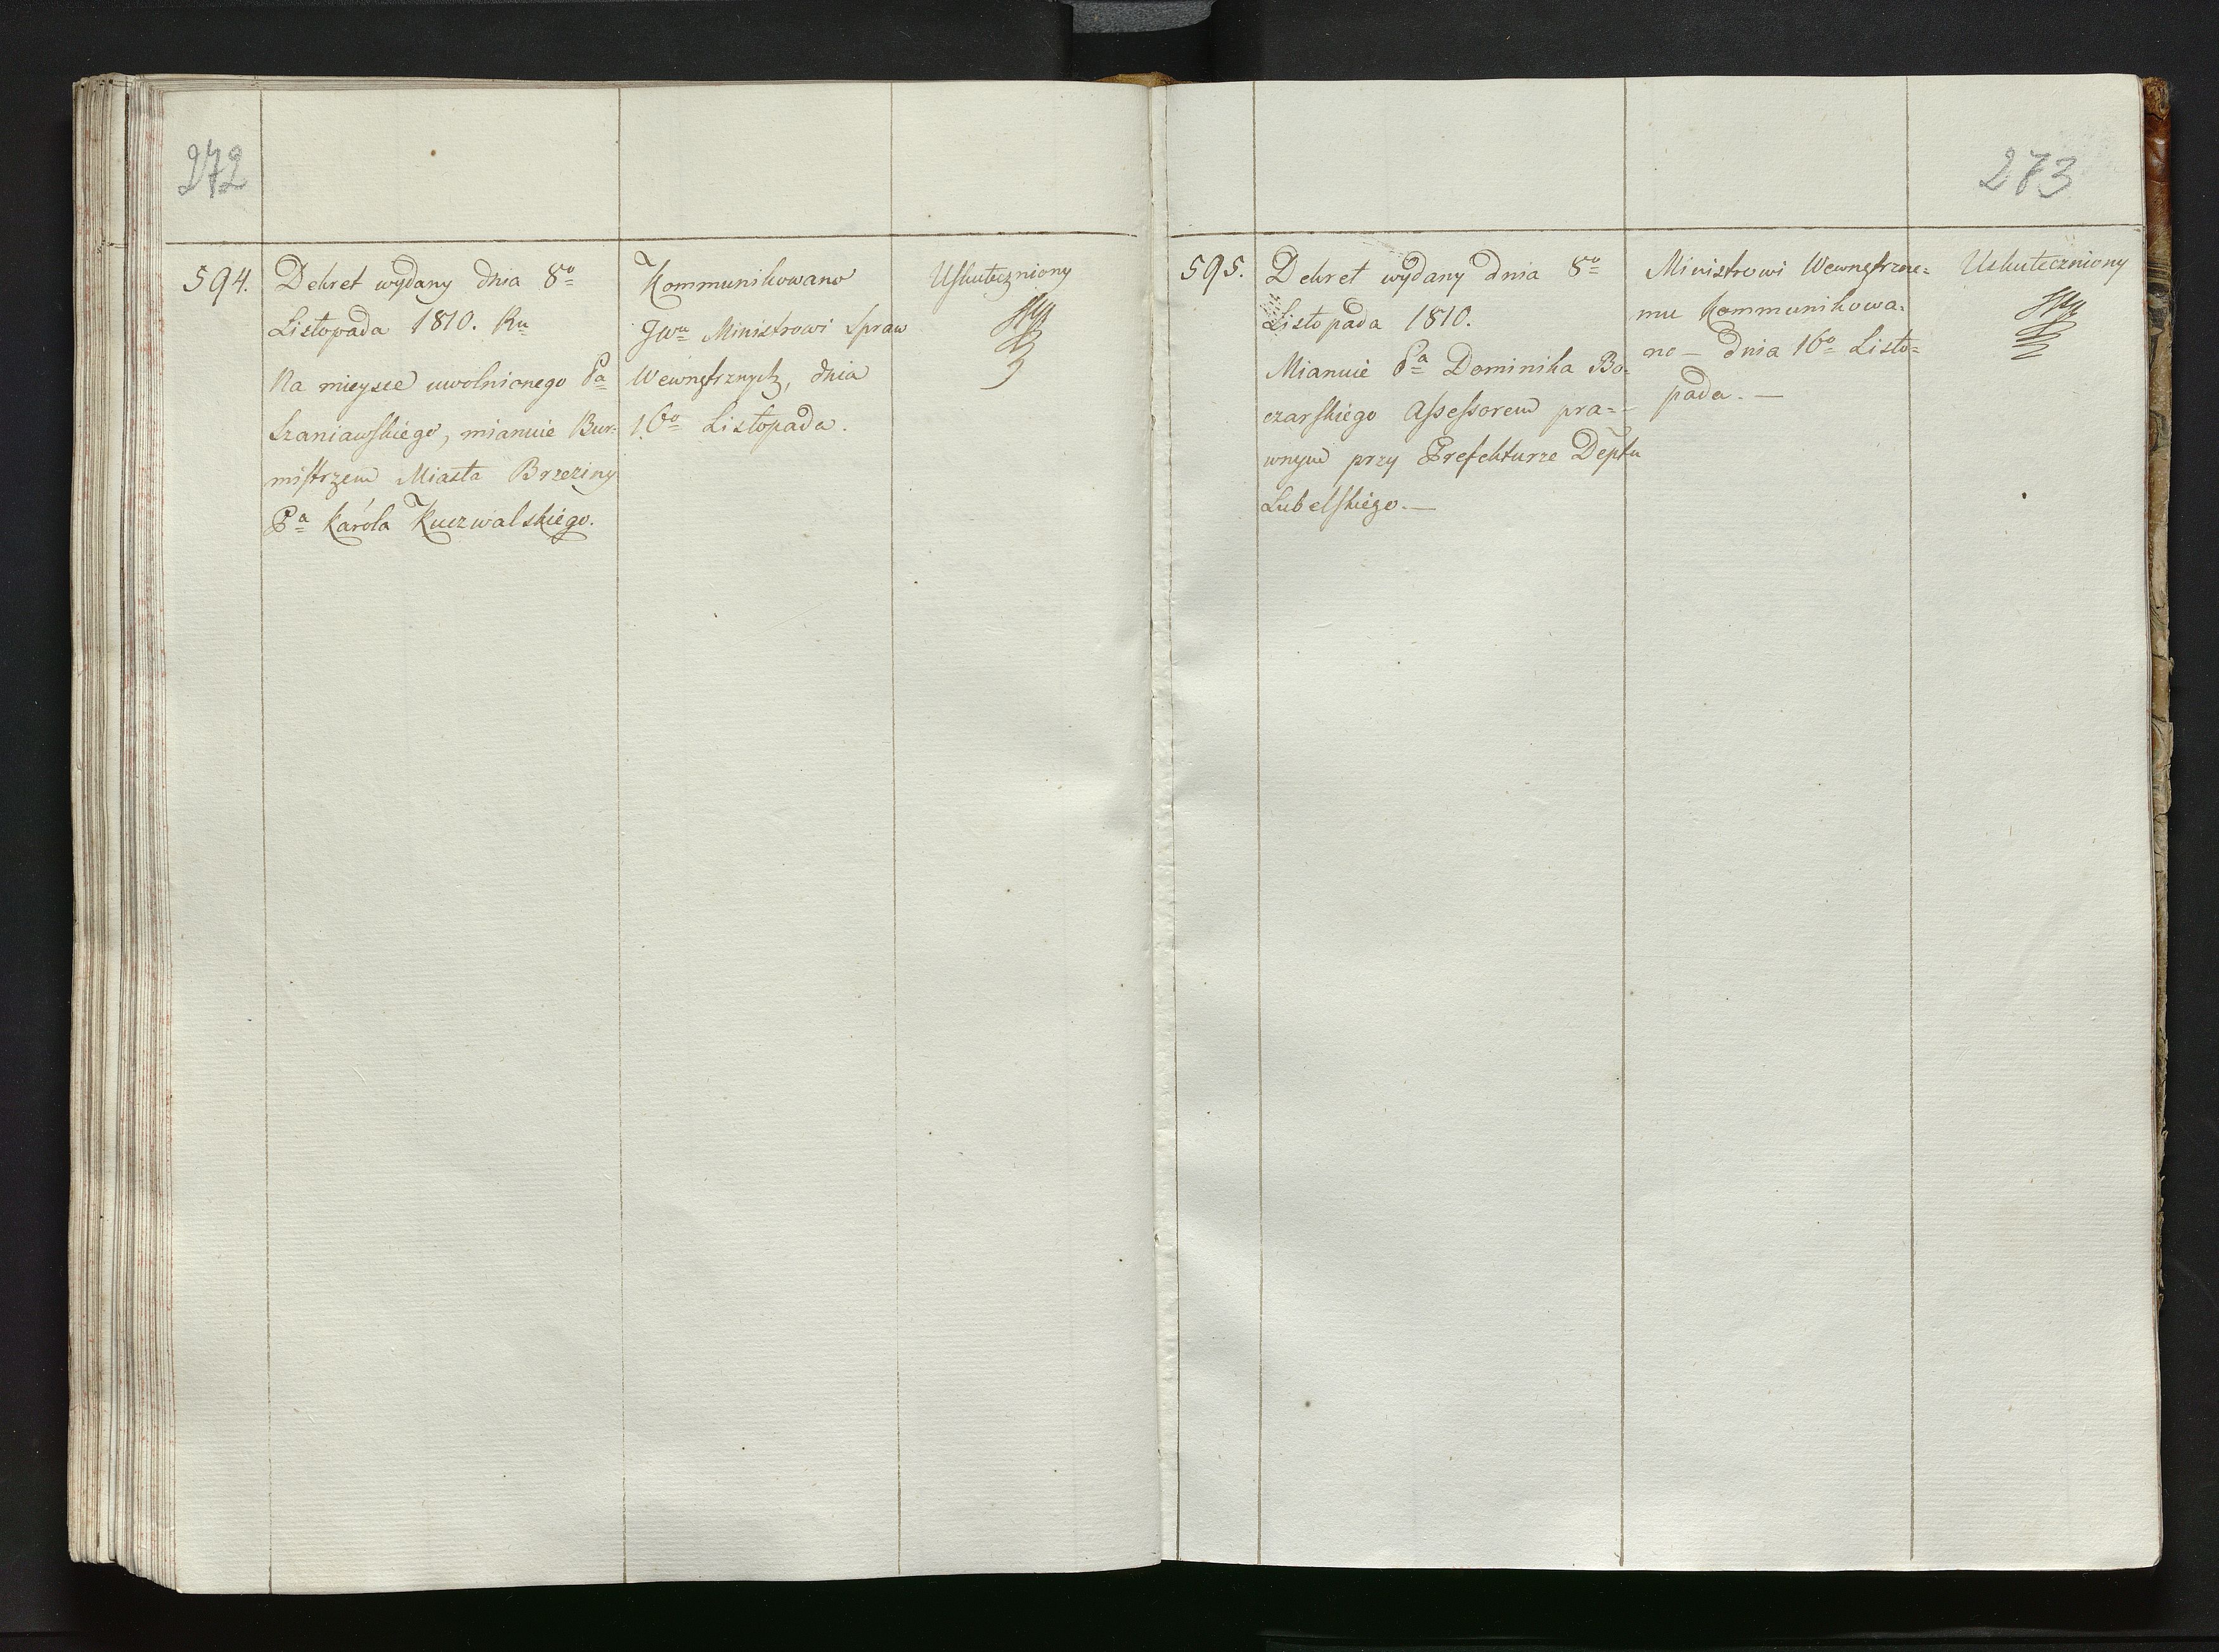 272
594.
Dekret wydany dnia 8o
Listopada 1810. Ru
Na mieysce uwolnionego Pa
Szaniawskiego, mianuie Bur=
mistrzem Miasta Brzeziny
Pa Karóla Kuczwalskiego.
Kommunikowano
JWu Ministrowi Spraw
Wewnętrznych, dnia
16o Listopada.
Uskuteczniony
273
595.
Dekret wydany dnia 8o
Listopada 1810.
Mianuie Pa Dominika Bo=
czarskiego Assessorem pra=
wnym przy Prefekturze Deptu
Lubelskiego. —
Ministrowi Wewnętrzne=
mu Kommunikowa=
no — dnia 16o Listo=
pada. —
Uskuteczniony